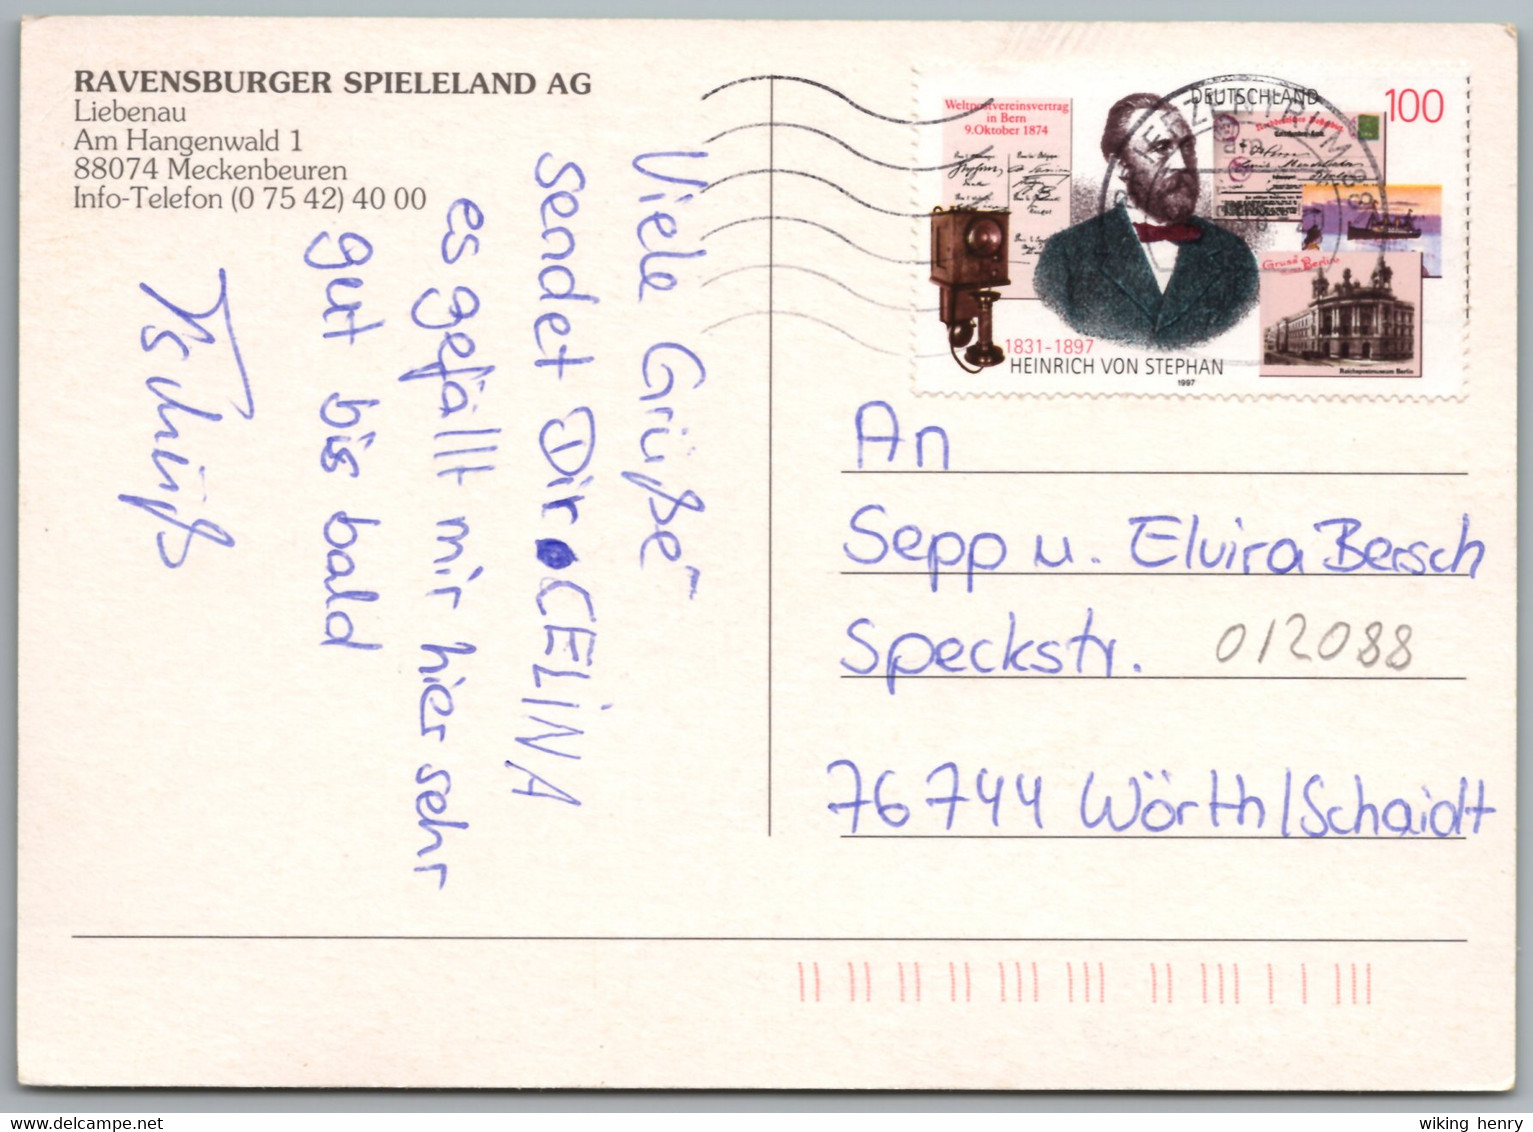 RAVENSBURGER SPIELELAND AG
Liebenau
Am Hangenwald 1
88074 Meckenbeuren
Info-Telefon (0 75 42) 40 00
Viele Grüße
sendet Dir CELINA
es gefällt mir hier sehr
gut bis bald
Tschüß
Weltpostvereinsvertrag
in Bern
9.Oktober 1874
DEUTSCHLAND
100
Gruss
Berlin
Reichspostmuseum Berlin
1831-1897
HEINRICH VON STEPHAN
1997
An
Sepp u. Elvira Bersch
Speckstr.
012088
76744 Wörth/Schaidt
wiking henry